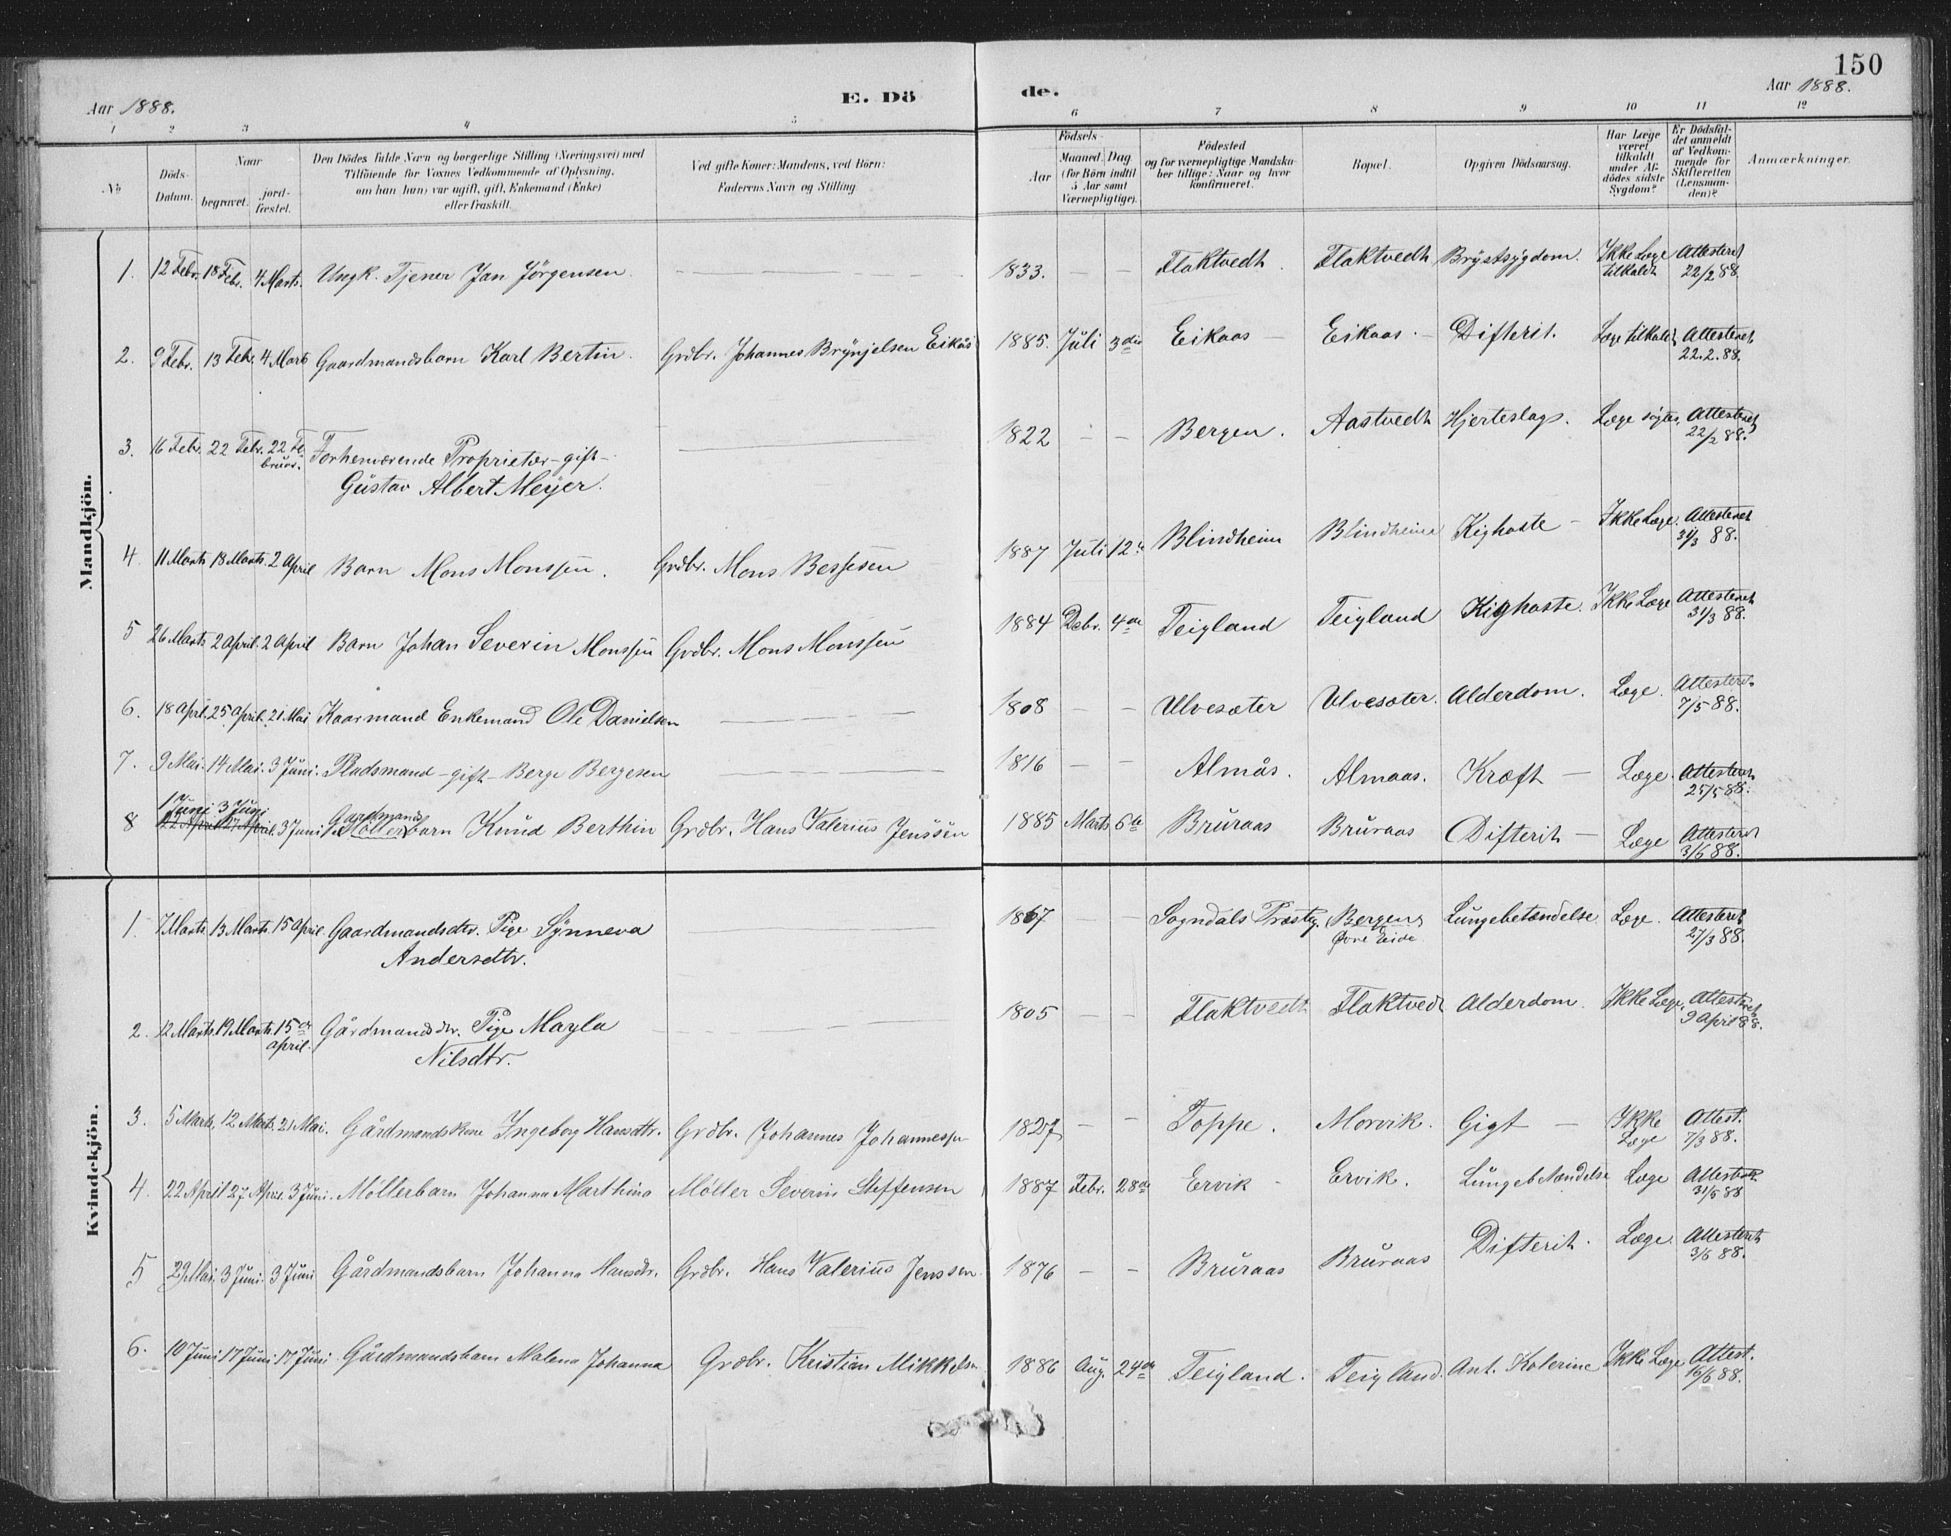 150
Aar 1888. E. Dö de. Aar 1888.
1 2 3 4 5 6 7 8 9 10 11 12
No Döds-Datum. Naar begravet. jord-fæstet. Den Dödes fulde Navn og borgerlige Stilling (Næringsvei) med Tilföiende for Voxnes Vedkommende af Oplysning, om han (hun) var ugift, gift, Enkemand (Enke) eller fraskilt. Ved gifte Koner: Mandens, ved Börn: Faderens Navn og Stilling. Födsels- Aar Maaned. Dag (for Börn indtil 5 Aar samt Værnepligtige). Födested og for værnepligtige Mandskaber tillige: Naar og hvor konfirmeret. Bopæl. Opgiven Dödsaarsag. Har Læge været tilkaldt under Afdödes sidste Sygdom? Er Dödsfaldet anmeldt af Vedkommende for Skifteretten (Lensmanden)? Anmærkninger.
Mandkjön.
1. 12 Febr. 18 Febr. 4 Marts. Ungk. Tjener Jan Jörgensen — — 1833. — — Flaktvedt. Flaktvedt Brÿstsÿgdom. Ikke Læge tilkaldt Attesteret 22/2 88.
2. 9 Febr. 13 Febr. 4 Marts Gaardmandsbarn Karl Bertin. Grdbr. Johannes Brÿnjelsen Eikås 1885. Juli 3die Eikaas — Eikaas. — Difterit. Læge tilkaldt Attesteret 22.2.88.
3. 16 Febr. 22 Febr. 22 Februar. Forhenværende Proprietær - gift - — 1822 — — Bergen. Aastvedt Hjerteslag. Læge søgtes Attesteret 22/2 88.
Gustav Albert Meÿer.
4 11 Marts 18 Marts. 2 April Barn Mons Monssen. Grdbr. Mons Bessesen 1887 Juli 12te Blindheim Blindheim Kighoste — Ikke Læge. Attesteret 31/3 88.
5 26 Marts 2 April. 2 April Barn Johan Severin Monssen Grdbr. Mons Monssen 1884 Debr. 4de Teigland Teigland Kighoste. Ikke Læge Attesteret 31/3 88.
6. 18 April. 25 April. 21. Mai Kaarmand Enkemand Ole Danielsen — 1808 — — Ulvesæter Ulvesæter. Alderdom. Læge. Attesteret 7/5 88.
7. 9 Mai. 14 Mai. 3 Juni. Pladsmand - gift - Berge Bergesen — 1816 — — Almås. Almaas. Kræft — Læge. Attesteret 25/5 88.
8 1 Juni 3 Juni 3 Juni Gardmands Möllerbarn Knud Berthin Grdbr. Hans Valerius Jenssen 1885 Marts 6te Bruraas Bruraas Difterit — Læge Attesteret 3/6 88.
22 April 27 April
Kvindekjön.
1. 7 Marts 13 Marts. 15 April Gaardmandsdtr. Pige Sÿnneva — 1867 — — Sogndals Præstg. Bergens Lungebetændelse Læge. Attesteret 27/3 88.
Andersdtr. Övre Eide
2. 12 Marts 19 Marts. 15de April. Gårdmandsdtr. Pige Mayla — 1805 — — Flaktvedt Flaktvedt Alderdom. Ikke Læge. Attesteret 9 April 88.
Nilsdtr.
3. 5 Marts. 12 Marts. 21 Mai. Gårdmandskone Ingeborg Hansdtr. Grdbr. Johannes Johannessen 1827 — — Toppe. Morvik. Gigt — Ikke Læge Attest. 7/3 88.
4. 22 April 27 April. 3 Juni. Möllerbarn Johanna Marthina Möller Severin Steffensen 1887 Febr. 28de Ervik — Ervik. Lungebetændelse Læge Attesteret 31/5 88
5 29 Mai. 3 Juni. 3 Juni Gårdmandsbarn Johanna Hansdtr. Grdbr. Hans Valerius Jenssen 1876 — — Bruraas Bruraas Difterit. Læge Attesteret 3/6 88.
6. 10 Juni 17 Juni 17 Juni Gårdmandsbarn Malena Johanna Grdbr. Kristian Mikkelsen 1886 Aug. 24de Teigland. Teigland. Ant. Kolerine Ikke Læge Attest. 16/6 88.